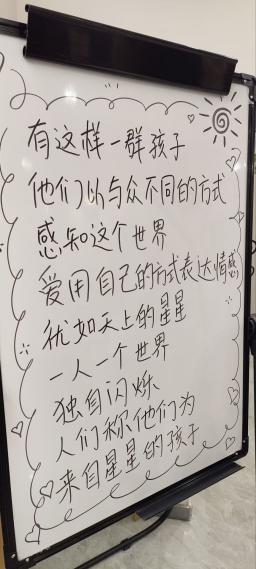 有这样一群孩子
他们以与众不同的方式
感知这个世界
爱用自己的方式表达情感
犹如天上的星星
一人一个世界
独自闪烁
人们称他们为
来自星星的孩子